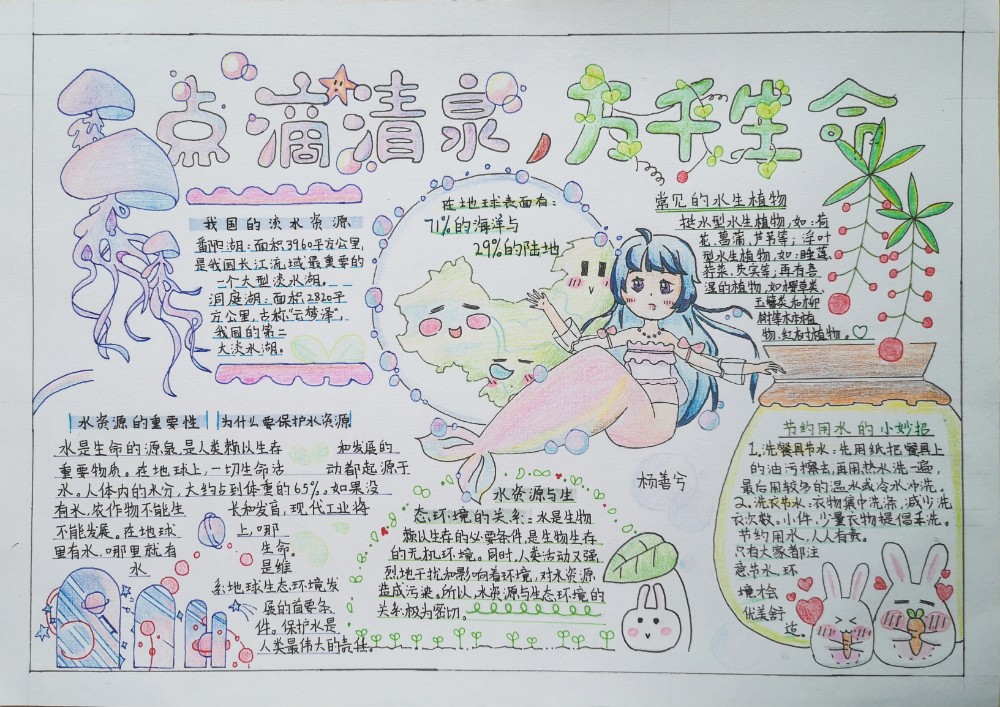 点滴清泉，万千生命
我国的淡水资源
鄱阳湖：面积3960平方公里，
是我国长江流域最重要的
一个大型淡水湖。
洞庭湖：面积2820平
方公里，古称“云梦泽”，
我国的第二
大淡水湖。
在地球表面有：
71%的海洋与
29%的陆地
常见的水生植物
挺水型水生植物，如：荷
花、菖蒲、芦苇等；浮叶
型水生植物，如：睡莲、
荇类、芡实等，再有喜
湿的植物，如樱草类、
玉簪类和柳
树等木本植
物、红树植物。
水资源的重要性 为什么要保护水资源
水是生命的源泉，是人类赖以生存 和发展的
重要物质。在地球上，一切生命活 动都起源于
水。人体内的水分，大约占到体重的65%。如果没
有水，农作物不能生 长和发育，现代工业将
不能发展。在地球 上，哪
里有水，哪里就有 生命。
水 是维
系地球生态环境发
展的首要条
件。保护水是
人类最伟大的责任。
水资源与生
态环境的关系：水是生物
赖以生存的必要条件，是生物生存
的无机环境。同时，人类活动又强
烈地干扰和影响着环境，对水资源
造成污染。所以，水资源与生态环境的
关系极为密切。
杨善兮
节约用水的小妙招
1、洗餐具节水：先用纸把餐具上
的油污擦去，再用热水洗一遍，
最后用较多的温水或冷水冲洗。
2、洗衣节水：衣物集中洗涤，减少洗
衣次数。小件、少量衣物提倡手洗。
节约用水，人人有责。
只有大家都注
意节水，环
境才会
优美舒
适。